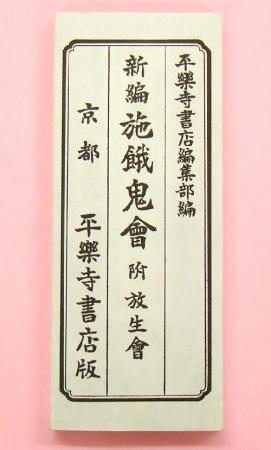 平樂寺書店編集部編
新編施餓鬼會附放生會
京都 平樂寺書店版